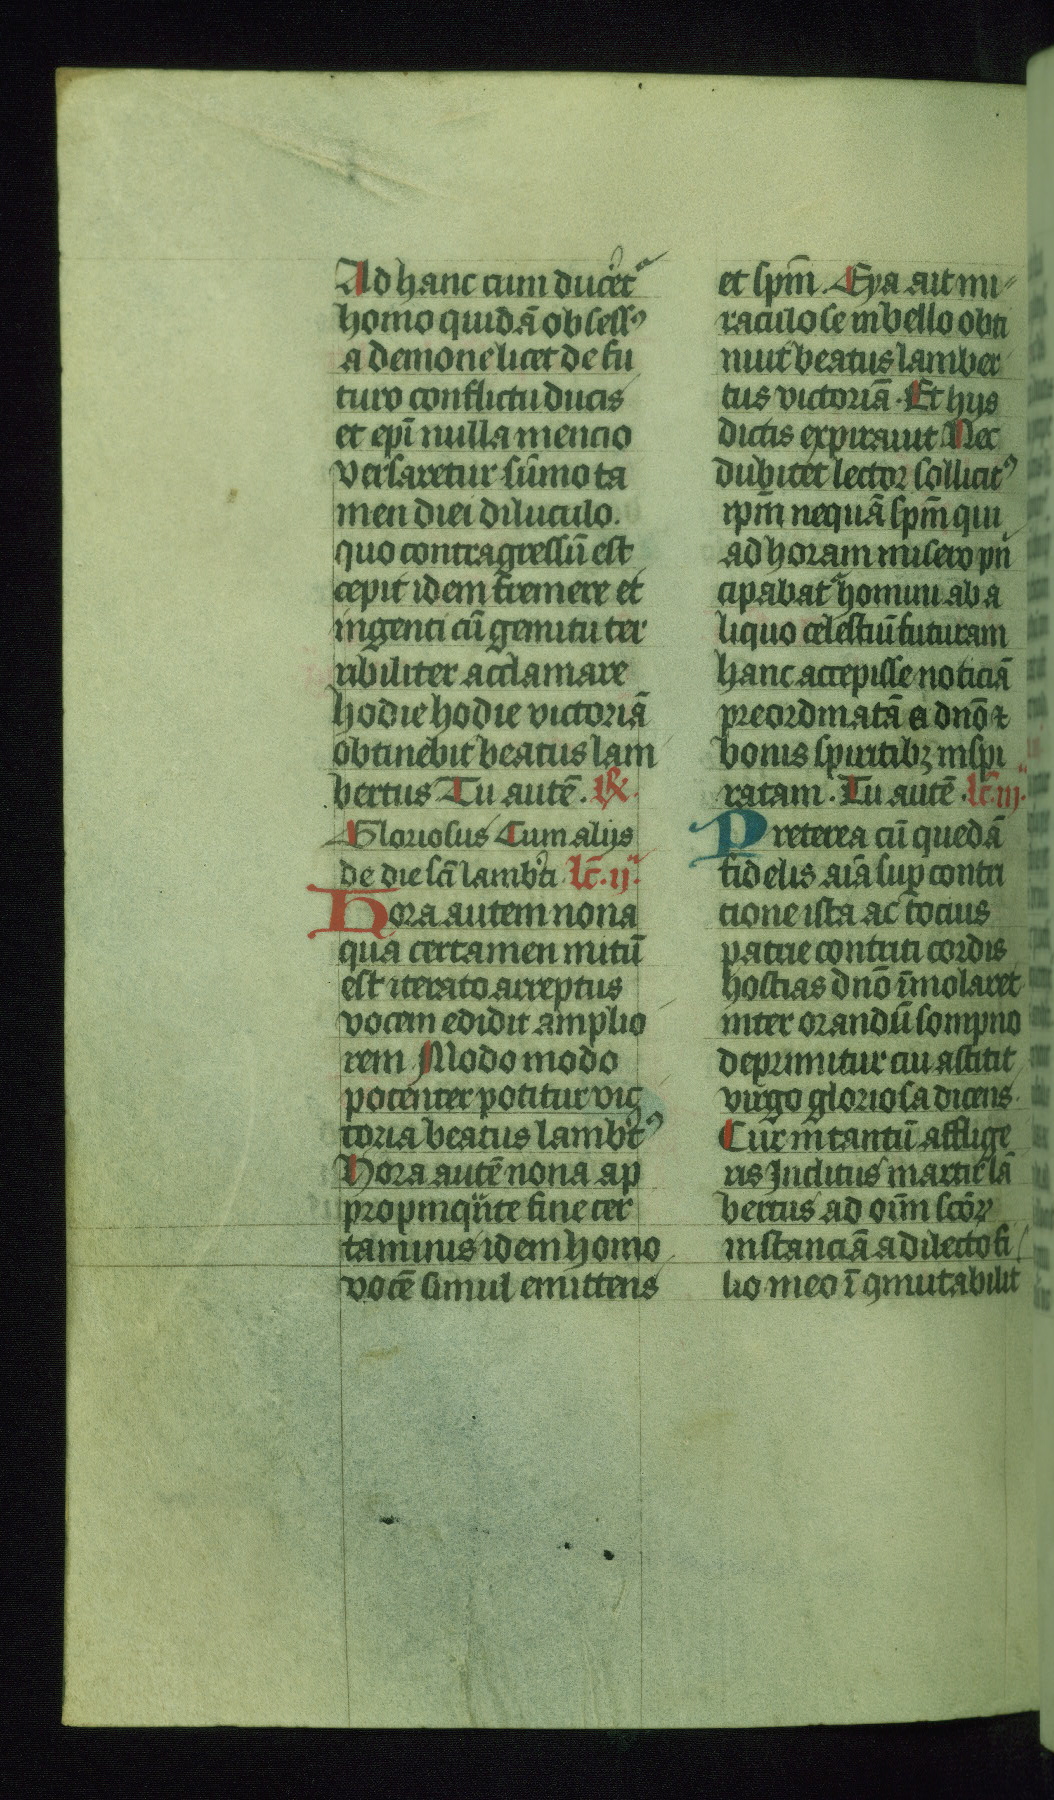 Ad hanc cum ducēt᷑
homo quidā obsess⁹
a demone licet de fu
turo conflictu ducis
et ep̄i nulla mencio
versaretur sūmo ta
men diei diluculo.
quo contragressū est
cepit idem fremere et
ingenti cū gemitu ter
ribiliter acclamare
hodie hodie victoriā
obtinebit beatus lam
bertus Tu autē. ℟.
Gloriosus Cum alijs
de die sc̄i lamb̾ti lc̄.ij.ᵃ
Hora autem nona
qua certamen initū
est iterato arreptus
vocem edidit amplio
rem Modo modo
potenter potitur vic
toria beatus lamb̾t⁹
Hora autē nona ap
propinq̈nte fine cer
taminis idem homo
vocē simul emittens
et sp̄m. Eya ait mi
raculose in bello obti
nuit beatus lamber
tus victoriā. Et hys
dictis expirauit Nec
dubitet lector sollicit⁹
ip̄m nequā sp̄m qui
ad horam misero prī
cipabat᷑ homini ab a
liquo celestiū futuram
hanc accepisse noticiā
preordinatā a dn̄o ⁊
bonis spiritibꝫ inspi
ratam. Tu autē. lc̄.iij.ᵃ
Preterea cū quedā
fidelis aīa sup̱ contri
tione ista ac tocius
patrie contriti cordis
hostias dn̄o īmolaret
inter orandū sompno
deprimitur cui astitit
virgo gloriosa dicens.
Cur in tantū afflige
ris Inclitus martir lā
bertus ad oīm sc̄oꝝ
instanciā a dilecto fi
lio meo ī ꝯmutabilit̾